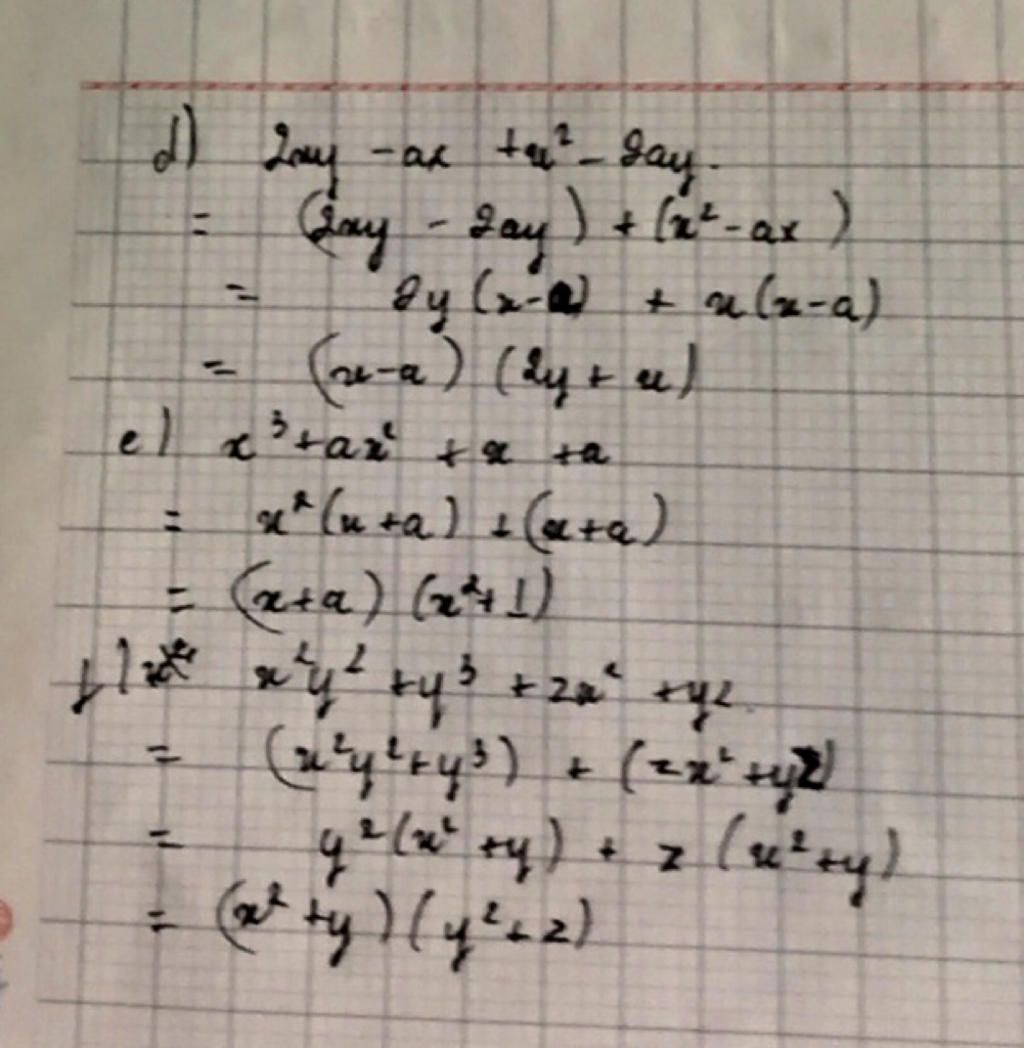 d) 2xy - ax + x² - 2ay.
= (2xy - 2ay) + (x² - ax)
= 2y(x-a) + x(x-a)
= (x-a) (2y + x)
e) x³ + ax² + x + a
= x²(x+a) + (x+a)
= (x+a) (x²+1)
f) x²y² + y³ + zx² + yz
= (x²y²+y³) + (zx²+yz)
= y²(x²+y) + z(x²+y)
= (x²+y)(y²+z)